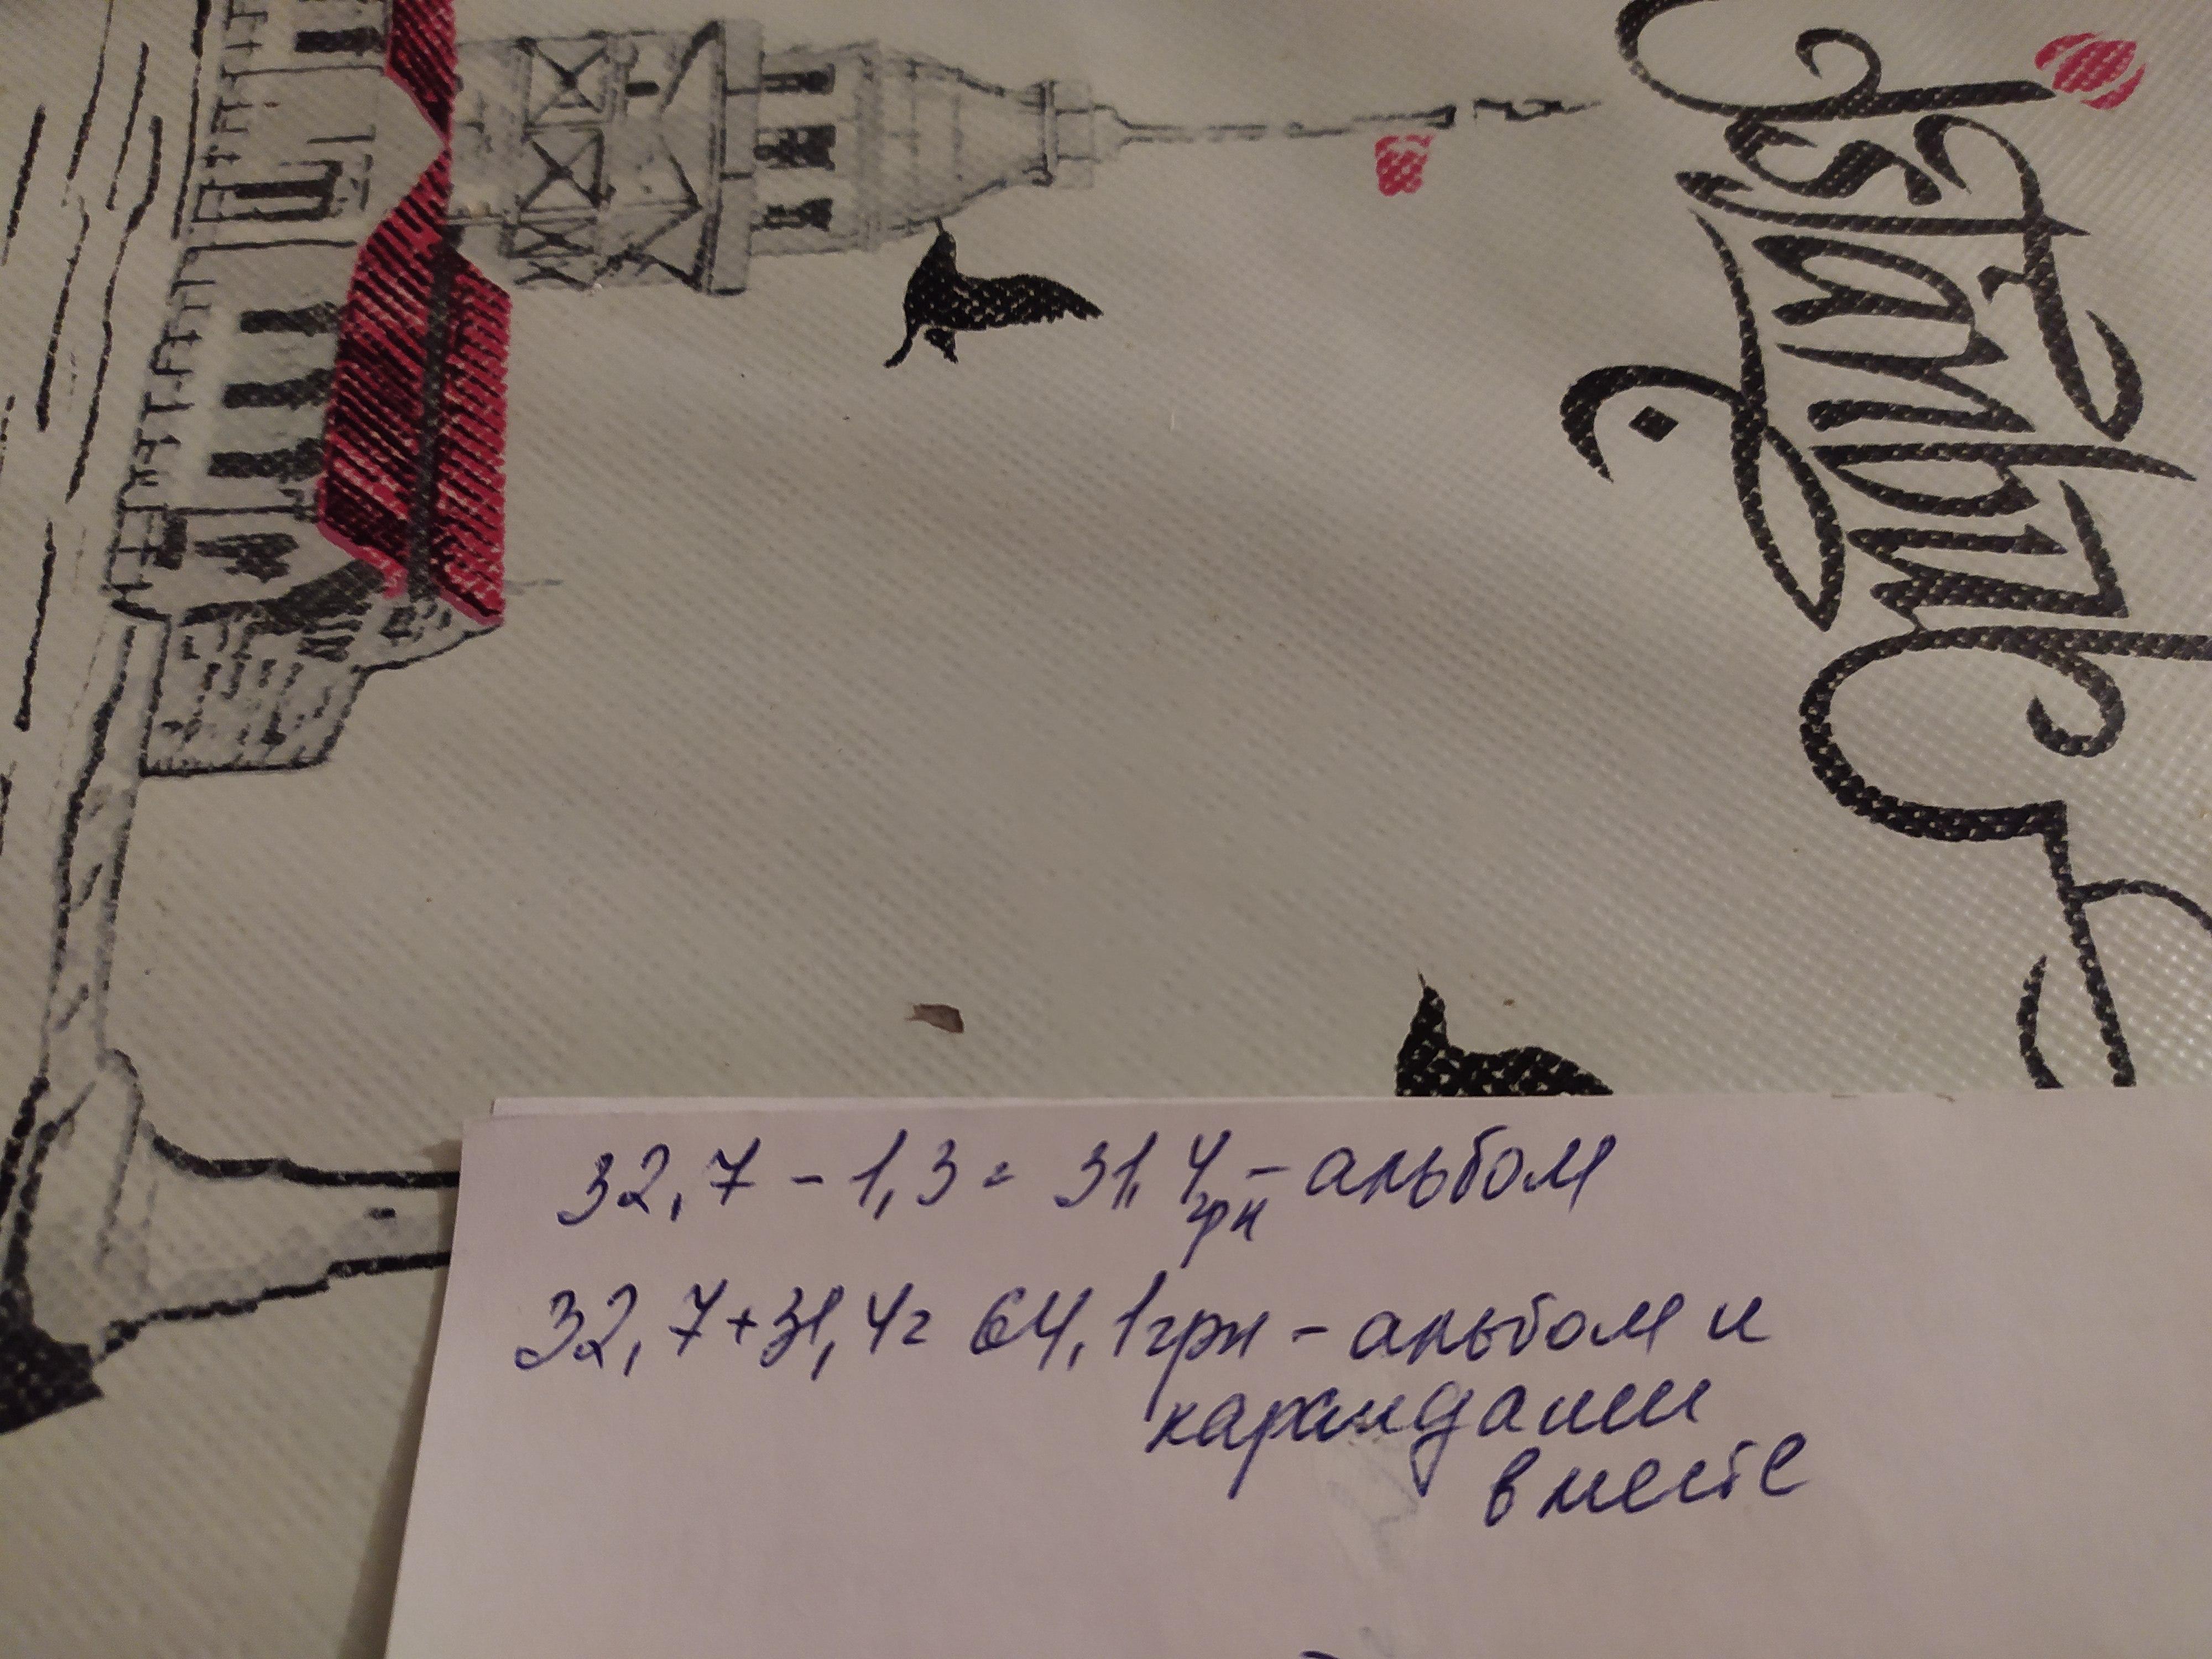 Istanbul
32,7 - 1,3 = 31,4 грн - альбом
32,7 + 31,4 = 64,1 грн - альбом и
карандаши
вместе